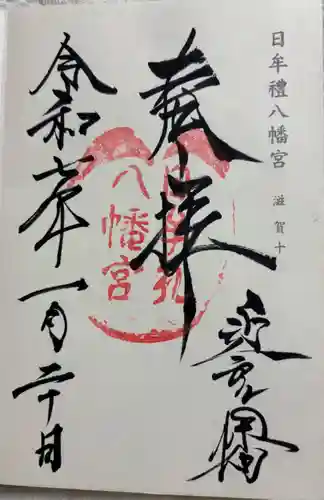 日牟禮八幡宮
滋賀十
奉拝
日牟礼
八幡宮
近江八幡
令和七年一月二十日